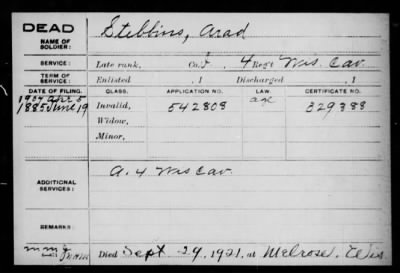 DEAD
NAME OF SOLDIER:
Stebbins, Arad
SERVICE:
Late rank, Co. I, 4 Reg't Wis. Cav.
TERM OF SERVICE:
Enlisted , 1 Discharged , 1
DATE OF FILING. CLASS. APPLICATION NO. LAW. CERTIFICATE NO.
1904 Apr 5 age
1885 June 19 Invalid, 542808 329388
Widow,
Minor,
ADDITIONAL SERVICES:
A. 4 Wis Cav.
REMARKS:
Died Sept 29, 1921, at Melrose, Wis.